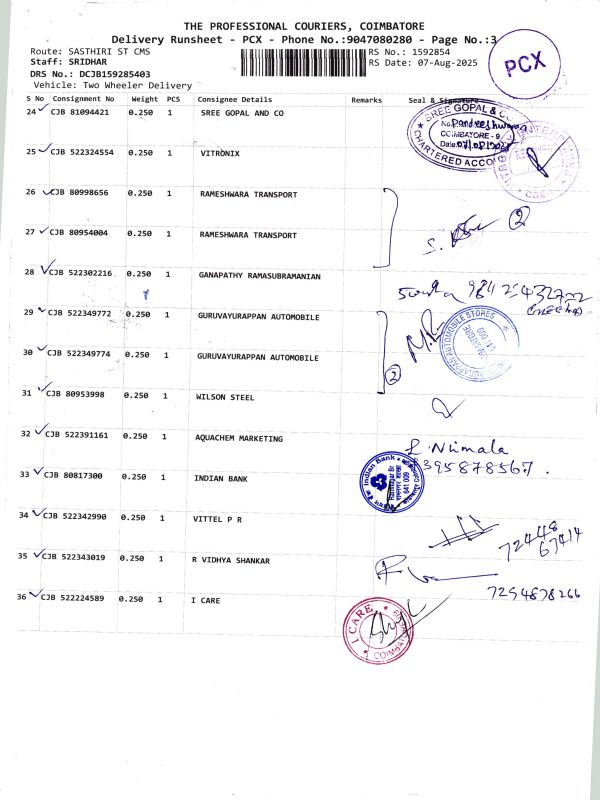 THE PROFESSIONAL COURIERS, COIMBATORE
Delivery Runsheet - PCX - Phone No.:9047080280 - Page No.:3
Route: SASTHIRI ST CMS
RS No.: 1592854
Staff: SRIDHAR
RS Date: 07-Aug-2025
DRS No.: DCJB159285403
Vehicle: Two Wheeler Delivery
PCX
S No Consignment No Weight PCS Consignee Details Remarks Seal & Signature
24 CJB 81094421 0.250 1 SREE GOPAL AND CO
SREE GOPAL & CO
COIMBATORE - 9
Date:
CHARTERED ACCO
25 CJB 522324554 0.250 1 VITRONIX
26 CJB 80998656 0.250 1 RAMESHWARA TRANSPORT
27 CJB 80954004 0.250 1 RAMESHWARA TRANSPORT
2
28 CJB 522302216 0.250 1 GANAPATHY RAMASUBRAMANIAN
29 CJB 522349772 0.250 1 GURUVAYURAPPAN AUTOMOBILE
AUTOMOBILE STORES
30 CJB 522349774 0.250 1 GURUVAYURAPPAN AUTOMOBILE
2
31 CJB 80953998 0.250 1 WILSON STEEL
32 CJB 522391161 0.250 1 AQUACHEM MARKETING
33 CJB 80817300 0.250 1 INDIAN BANK
Indian Bank
641 009
34 CJB 522342990 0.250 1 VITTEL P R
72448
67414
35 CJB 522343019 0.250 1 R VIDHYA SHANKAR
36 CJB 522224589 0.250 1 I CARE
7254878266
I CARE